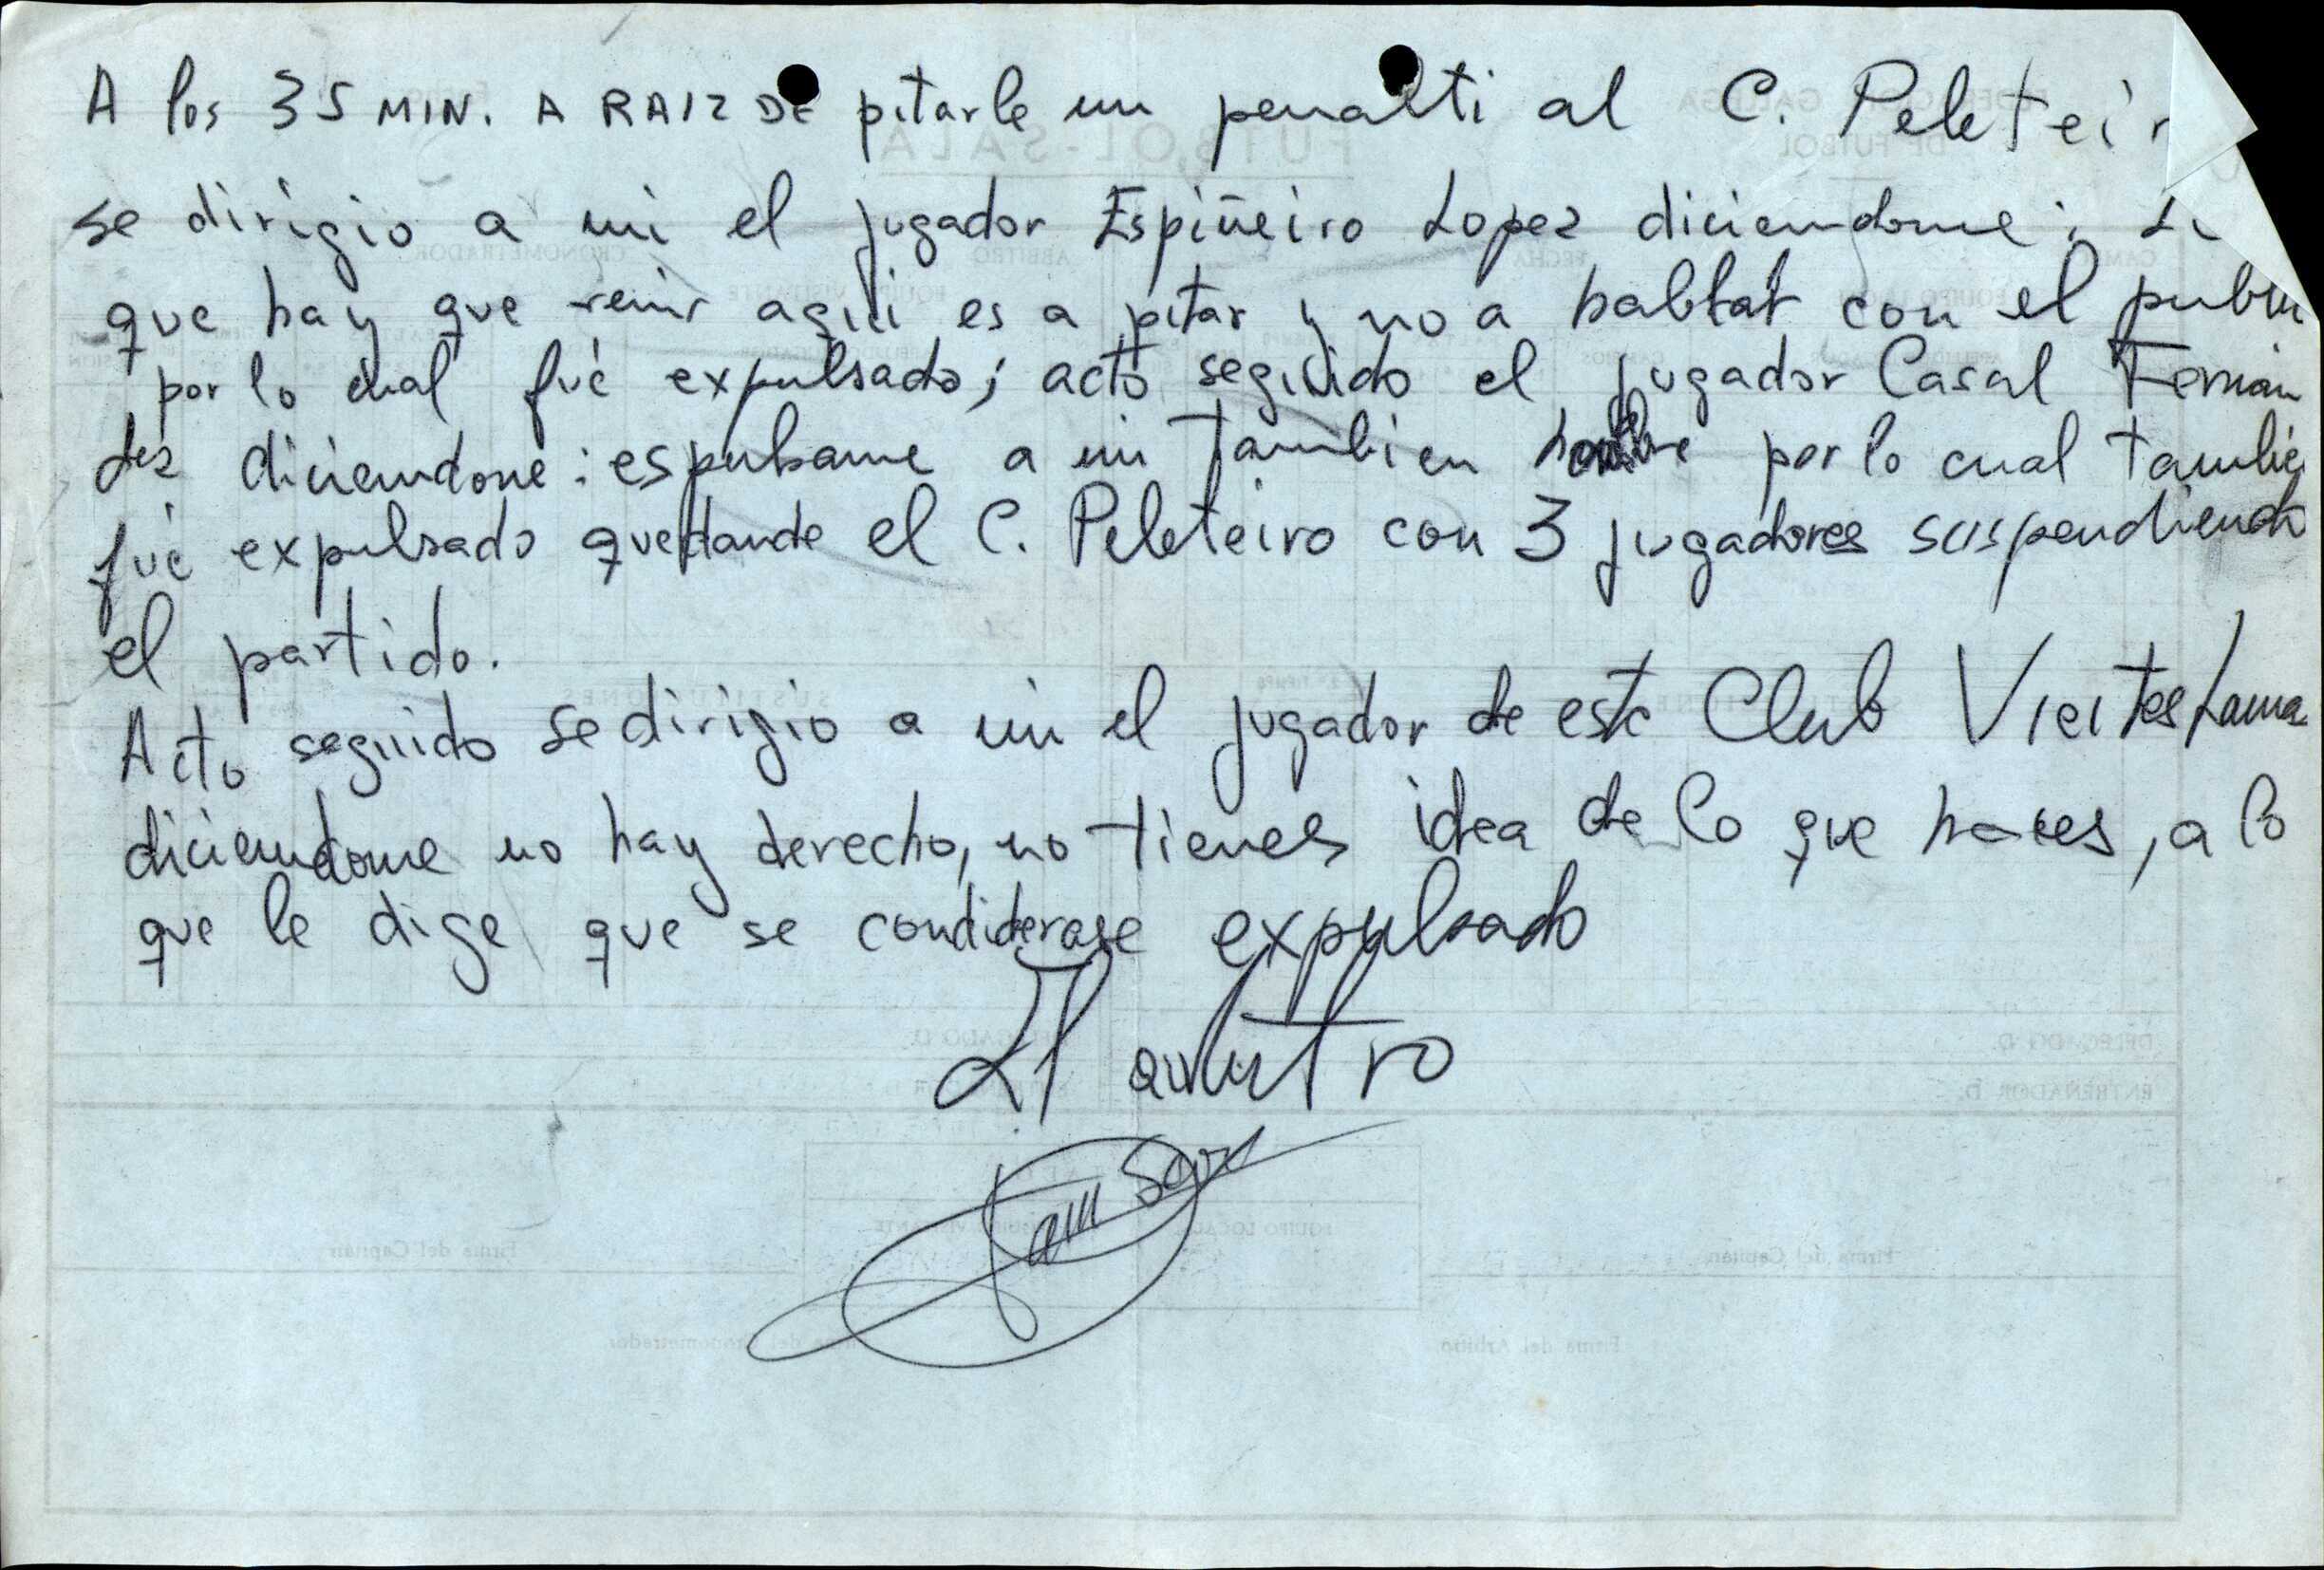 A los 35 MIN. A RAIZ DE pitarle un penalti al C. Peleteir
se dirigio a mi el jugador Espiñeiro Lopez diciendome: Lo
que hay que venir aqui es a pitar y no a hablat con el public
por lo cual fué expulsado; acto seguido el jugador Casal Fernan
dez diciendone: espulsame a mi tambien hombre por lo cual tambie
fué expulsado quedando el C. Peleteiro con 3 jugadores suspendiendo
el partido.
Acto seguido se dirigio a mi el jugador de este Club Vieites Lama
diciendome no hay derecho, no tienes idea de lo que haces, a lo
que le dige que se condiderase expulsado
El arbitro